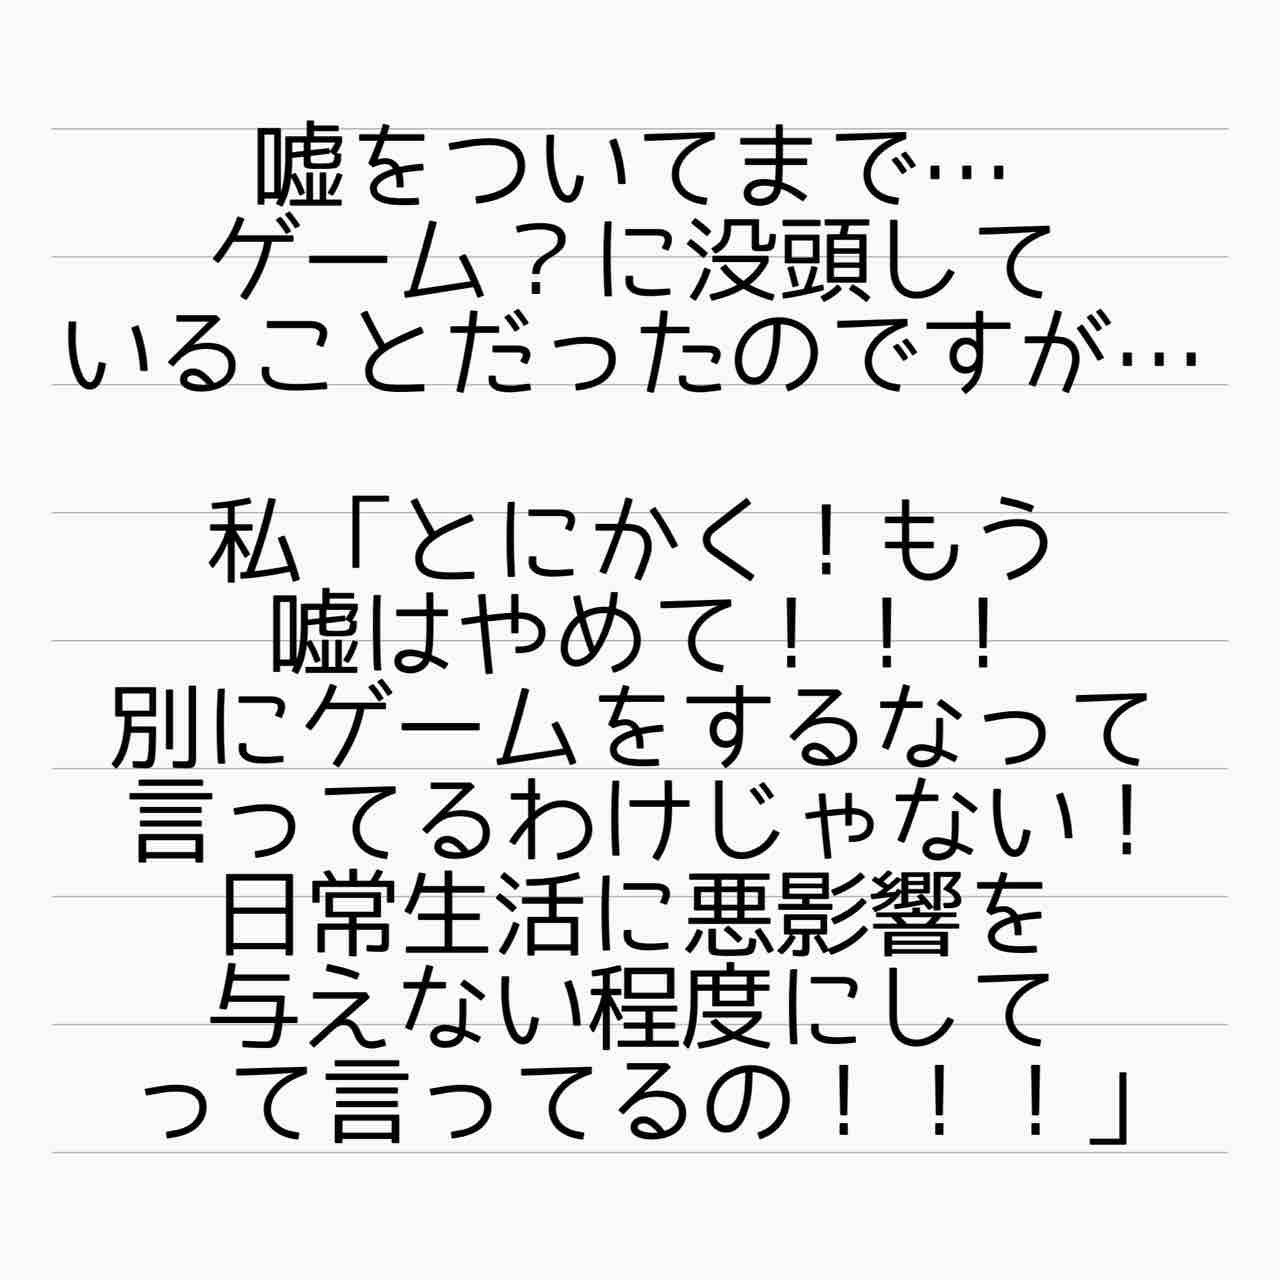 嘘をついてまで…
ゲーム？に没頭して
いることだったのですが…
私「とにかく！もう
嘘はやめて！！！
別にゲームをするなって
言ってるわけじゃない！
日常生活に悪影響を
与えない程度にして
って言ってるの！！！」